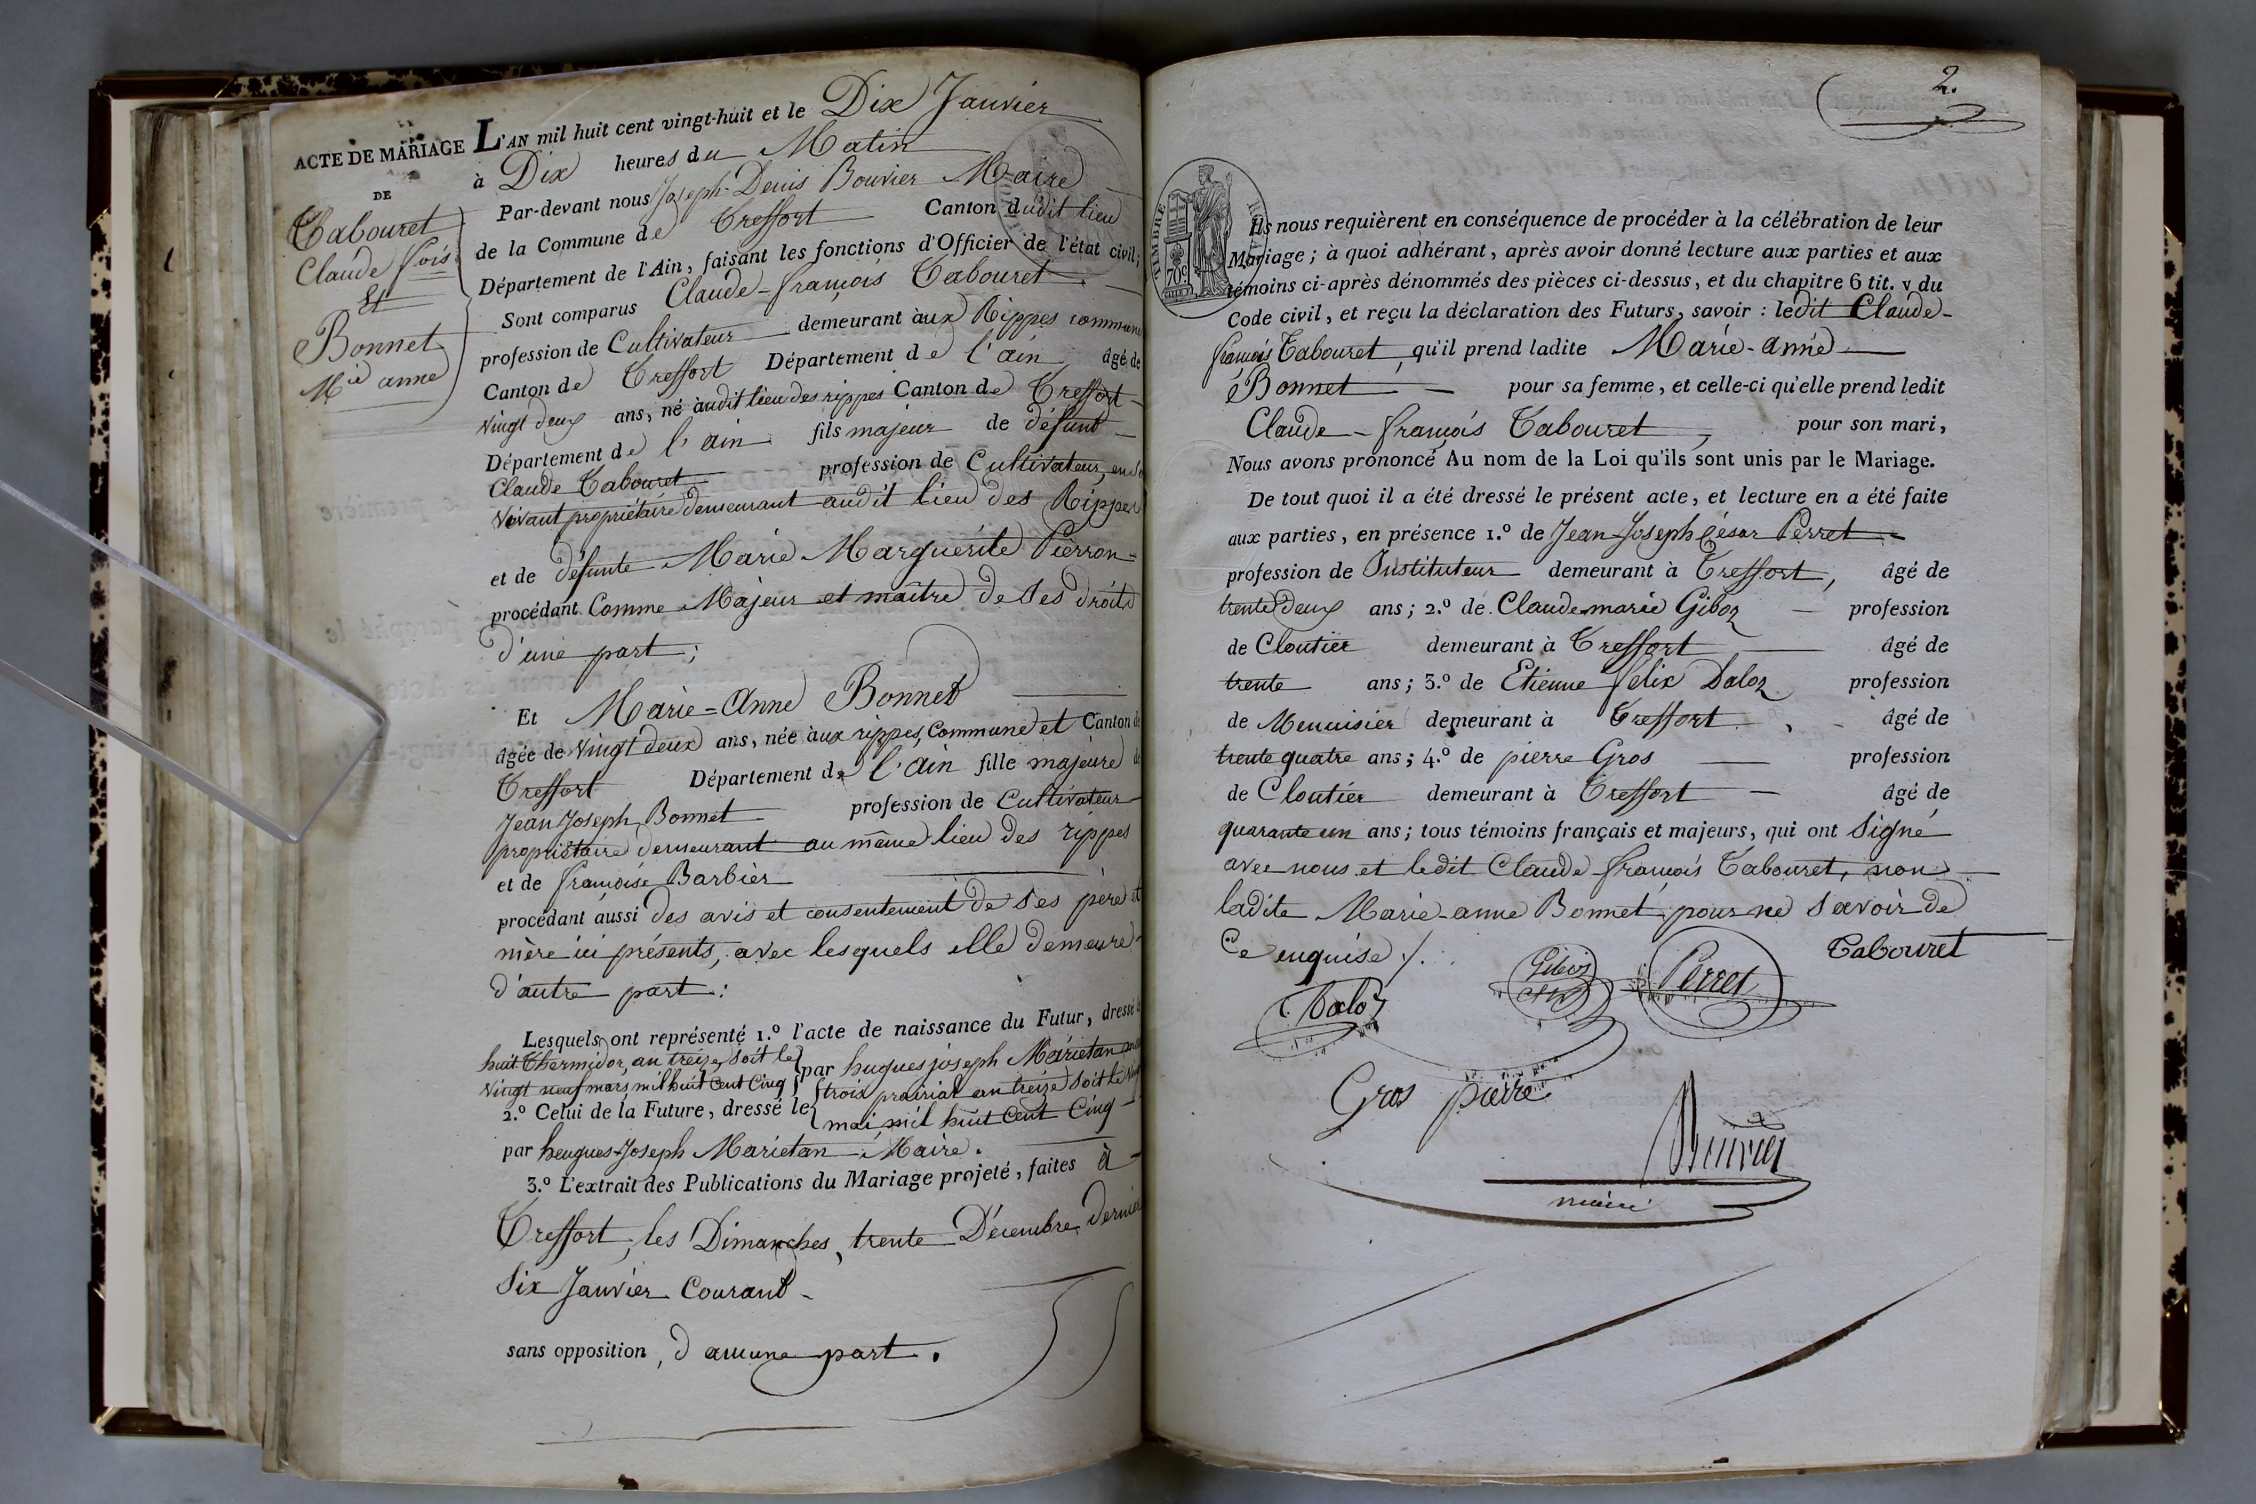 ACTE DE MARIAGE
DE
Tabouret
Claude f.ois
Et
Bonnet
M.ie anne
L'AN mil huit cent vingt-huit et le Dix Janvier
à Dix heures du Matin
Par-devant nous Joseph-Denis Bouvier Maire
de la Commune de Treffort Canton dudit lieu
Département de l'Ain, faisant les fonctions d'Officier de l'état civil;
Sont comparus Claude-françois Tabouret
profession de Cultivateur demeurant aux Rippes commune
Canton de Treffort Département de l'ain âgé de
vingt deux ans, né audit lieu des rippes Canton de Treffort
Département de l'ain fils majeur de défunt
Claude Tabouret profession de Cultivateur, en so
vivant propriétaire demeurant audit lieu des Rippes
et de défunte Marie Marguerite Pierron
procédant Comme Majeur et maître de ses droits
d'une part;
Et Marie-Anne Bonnet
âgée de vingt deux ans, née aux rippes, Commune et Canton de
Treffort Département de l'ain fille majeure de
Jean Joseph Bonnet profession de Cultivateur
propriétaire demeurant au même lieu des rippes
et de françoise Barbier
procédant aussi des avis et consentement de ses père et
mère ici présents, avec lesquels elle demeure
d'autre part:
Lesquels ont représenté 1.º l'acte de naissance du Futur, dressé le
huit Thermidor, an treize, soit le
vingt neuf mars mil huit cent cinq par hugues joseph Marietan
2.º Celui de la Future, dressé le trois prairial an treize soit le
mai mil huit cent Cinq
par hugues-Joseph Marietan, Maire.
3.º L'extrait des Publications du Mariage projeté, faites à
Treffort, les Dimanches, trente Décembre dernier
Six Janvier Courant
sans opposition, d'aucune part.
2.
TIMBRE
70c
Ils nous requièrent en conséquence de procéder à la célébration de leur
Mariage; à quoi adhérant, après avoir donné lecture aux parties et aux
témoins ci-après dénommés des pièces ci-dessus, et du chapitre 6 tit. v du
Code civil, et reçu la déclaration des Futurs, savoir: ledit Claude-
françois Tabouret, qu'il prend ladite Marie-anne
Bonnet pour sa femme, et celle-ci qu'elle prend ledit
Claude-françois Tabouret, pour son mari,
Nous avons prononcé Au nom de la Loi qu'ils sont unis par le Mariage.
De tout quoi il a été dressé le présent acte, et lecture en a été faite
aux parties, en présence 1.º de Jean-Joseph César Perret
profession de Instituteur demeurant à Treffort, âgé de
trente deux ans; 2.º de Claude marie Giboz profession
de Cloutier demeurant à Treffort âgé de
trente ans; 3.º de Etienne felix Daloz profession
de Menuisier demeurant à Treffort âgé de
trente quatre ans; 4.º de pierre Gros profession
de Cloutier demeurant à Treffort âgé de
quarante un ans; tous témoins français et majeurs, qui ont Signé
avec nous et ledit Claude françois Tabouret, non
ladite Marie-anne Bonnet, pour ne savoir de
Ce enquise /.
Tabouret
Daloz
Giboz
Perret
Gros pierre
Bouvier
maire